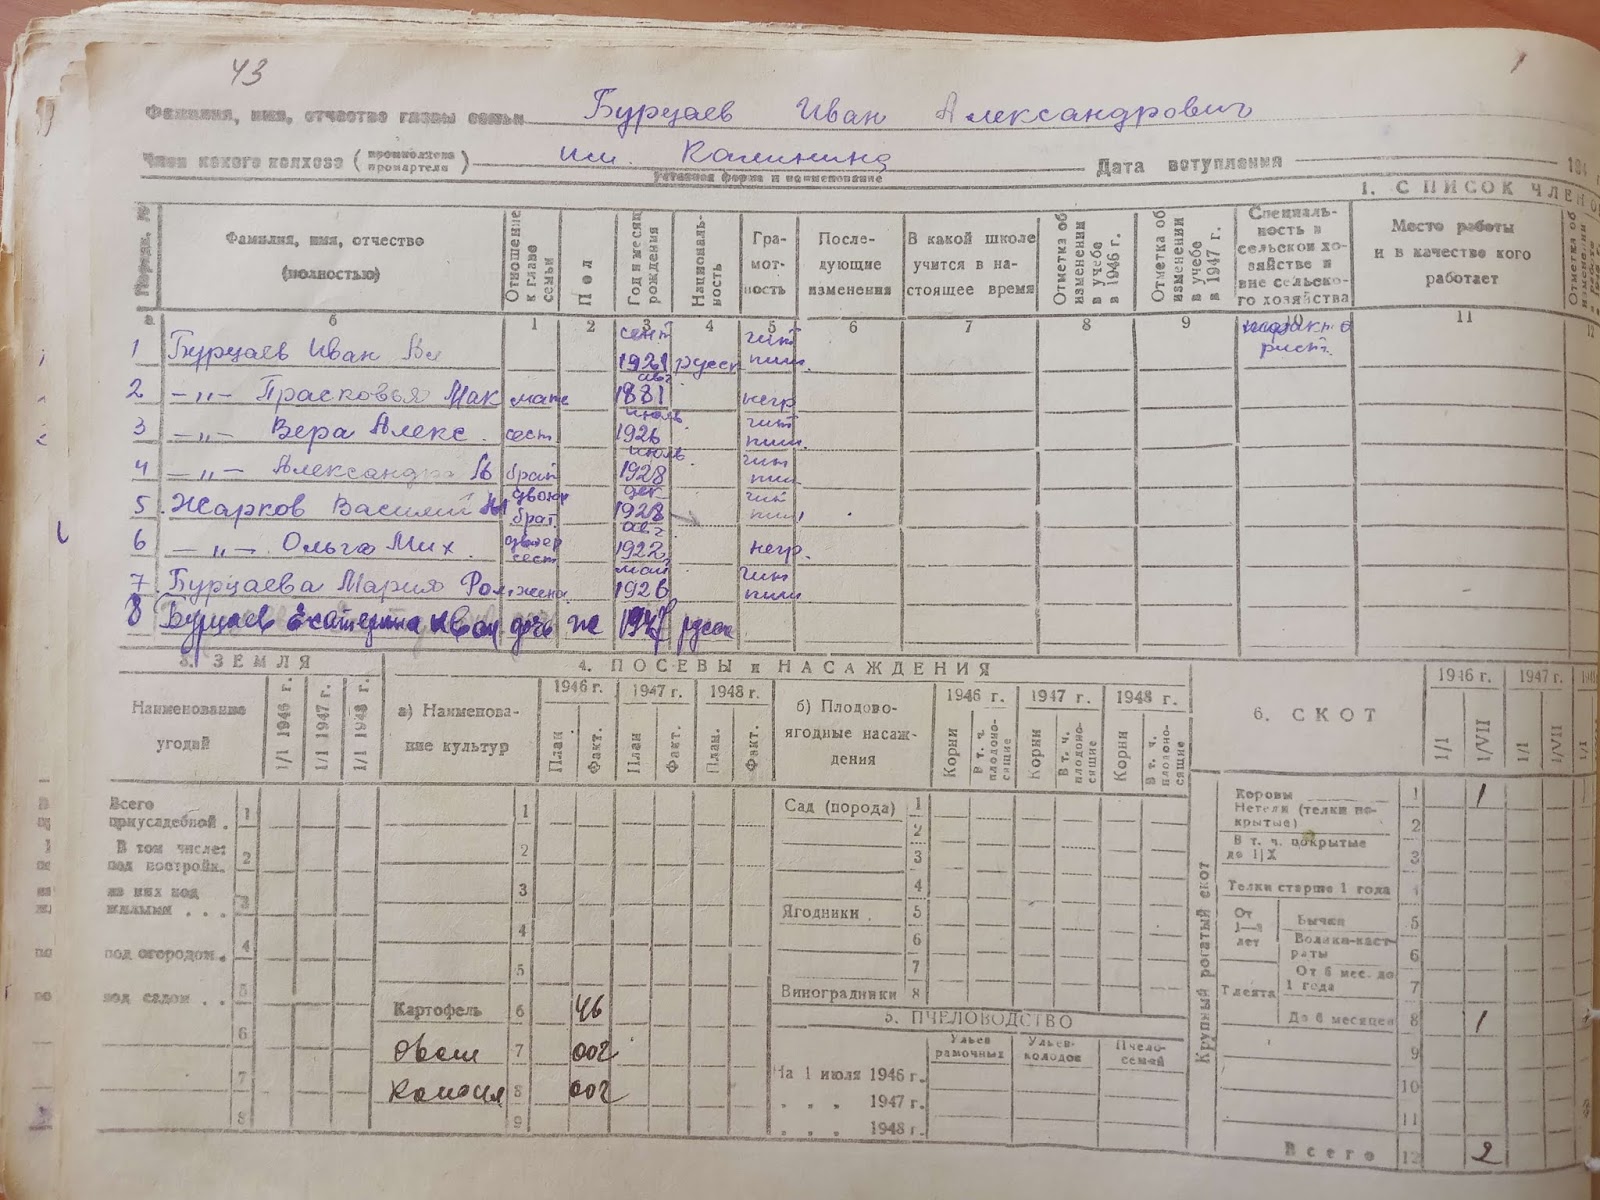 43
1
Фамилия, имя, отчество главы семьи Бурцаев Иван Александрович
Член какого колхоза (промколхоза промартели) им. Калинина Дата вступления 194 г
уставная форма и наименование
1. СПИСОК ЧЛЕНО
Порядк. № Фамилия, имя, отчество (полностью) Отношение к главе семьи Пол Год и месяц рождения Националь-ность Гра-мот-ность После-дующие изменения В какой школе учится в на-стоящее время Отметка об изменении в учебе в 1946 г. Отметка об изменении в учебе в 1947 г. Специаль-ность в сельском хо-зяйстве и вне сельско-го хозяйства Место работы и в качестве кого работает Отметка об
а б 1 2 3 4 5 6 7 8 9 10 11 12
1 Бурцаев Иван сент 1921 русск чит пиш.
2 -„- Прасковья Мак мать авг 1881 негр
3 -„- Вера Алекс. сест июль 1926 чит пиш.
4 -„- Александр брат июль 1928 чит пиш
5 Жарков Василий двоюр брат. дек 1928 чит пиш
6 -„- Ольга Мих. сест авг 1922 негр.
7 Бурцаева Мария Ром жена май 1926 чит пиш
8 Бурцаев Екатерина Иван дочь ж 1947 русск
3. ЗЕМЛЯ 4. ПОСЕВЫ и НАСАЖДЕНИЯ
Наименование угодий 1/I 1946 г. 1/I 1947 г. 1/I 1948 г. а) Наименова-ние культур 1946 г. 1947 г. 1948 г. б) Плодово-ягодные насаж-дения 1946 г. 1947 г. 1948 г. 6. СКОТ 1946 г. 1947 г.
План Факт. План Факт. План. Факт. Корни В т. ч. плодоно-сящие Корни В т. ч. плодоно-сящие Корни В т. ч. плодоно-сящие 1/I 1/VII 1/I 1/VII 1/I
Крупный рогатый скот
Всего приусадебной . 1 1 Сад (порода) 1 Коровы 1 1
2 Нетели (телки по-крытые) 2
В том числе: под постройк. 2 2 3 В т. ч. покрытые до 1/X 3
из них под жилыми . . . 3 3 4 Телки старше 1 года 4
4 Ягодники . 5 От 1—2 лет Бычки 5
под огородом. 4 6 Волики-каст-раты 6
5 7 Телята От 6 мес. до 1 года 7
под садом . . 5 Картофель 6 46 Виноградники 8 До 6 месяцев 8 1
6 5. ПЧЕЛОВОДСТВО 9
Ульев рамочных Ульев-колодок Пчело-семей
Овес 7 002 На 1 июля 1946 г. 10
7 8 002 „ „ „ 1947 г. 11
8 9 „ „ „ 1948 г.
Всего 12 2